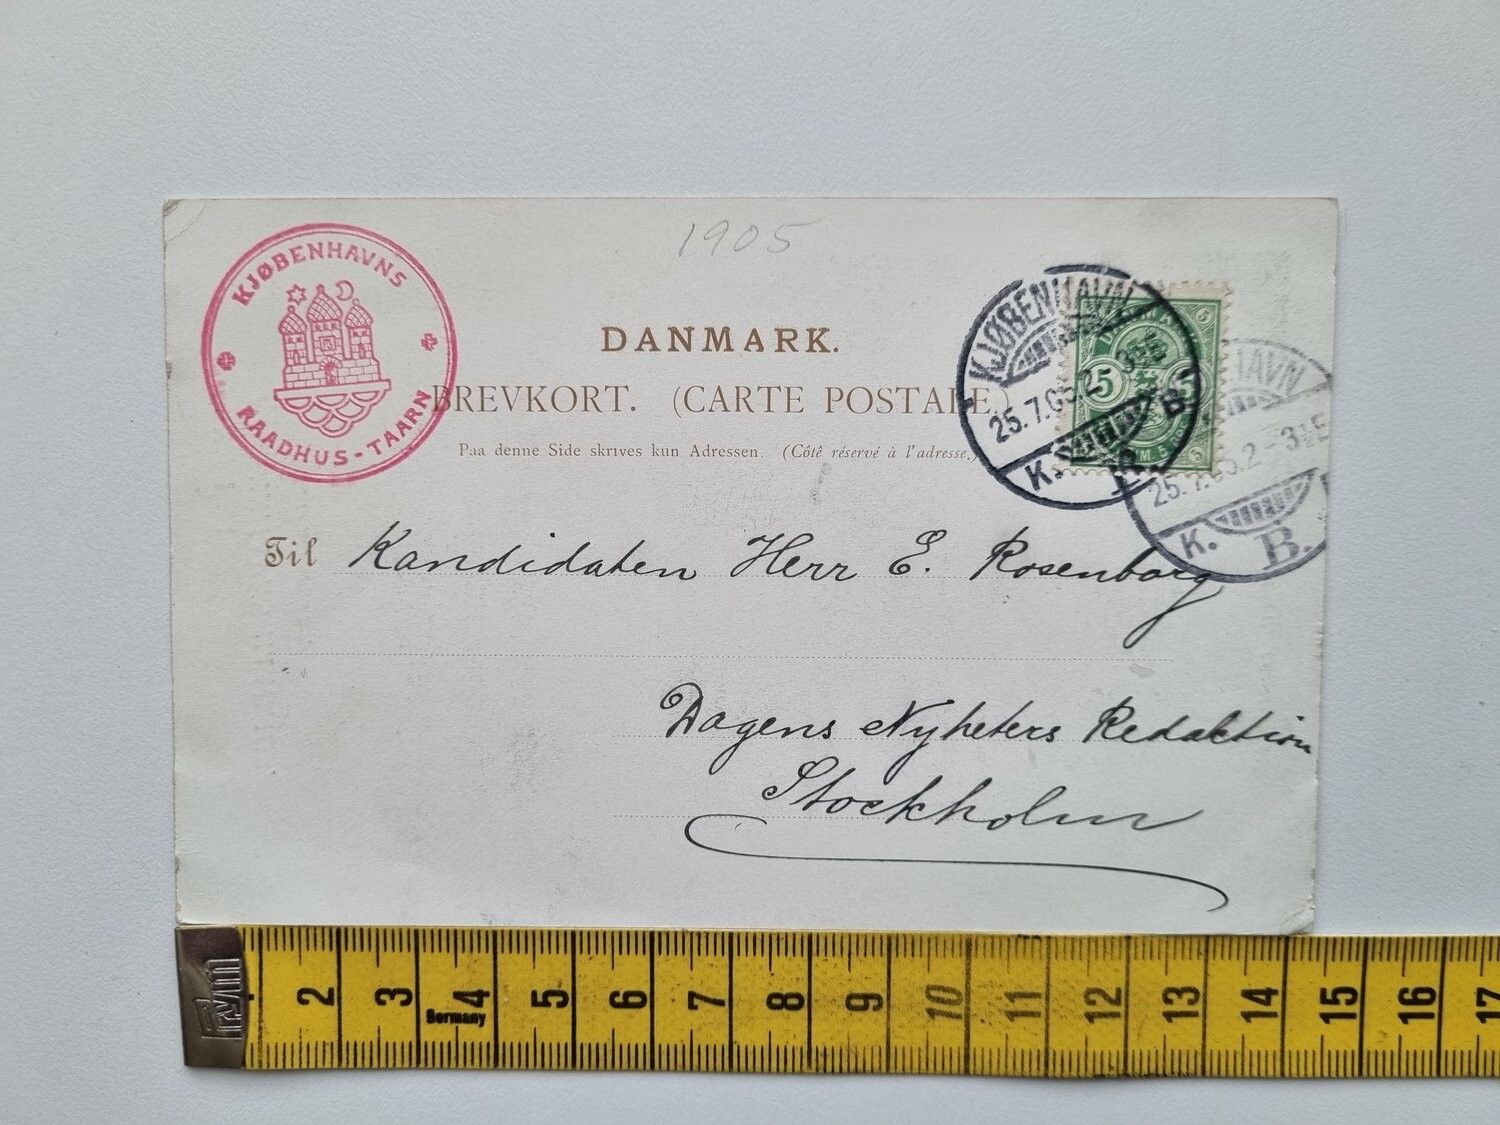 1905
KJØBENHAVNS
RAADHUS-TAARN
DANMARK.
BREVKORT. (CARTE POSTALE)
Paa denne Side skrives kun Adressen. (Côté réservé à l'adresse.)
KJØBENHAVN
25.7.05.2-3½E
K. B.
5 5
HAVN
25.7.05.2-3½E
K. B.
Til Kandidaten Herr E. Rosenborg
Dagens Nyheters Redaktion
Stockholm
Prym
Germany
2 3 4 5 6 7 8 9 10 11 12 13 14 15 16 17